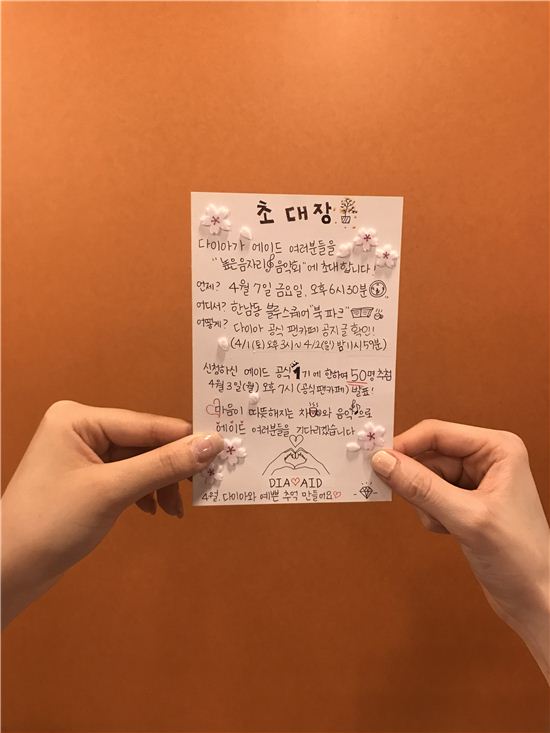 초대장
다이아가 에이드 여러분들을
"높은음자리 음악회"에 초대합니다!
언제? 4월 7일 금요일, 오후 6시 30분
어디서? 한남동 블루스퀘어 "북파크"
어떻게? 다이아 공식 팬카페 공지글 확인!
(4/1(토) 오후 3시 ~ 4/2(일) 밤 11시 59분)
신청하신 에이드 공식 1기에 한하여 50명 추첨
4월 3일(월) 오후 7시 (공식 팬카페) 발표!
마음이 따뜻해지는 차와 음악으로
에이드 여러분들을 기다리겠습니다
DIA♡AID
4월, 다이아와 예쁜 추억 만들어요♡